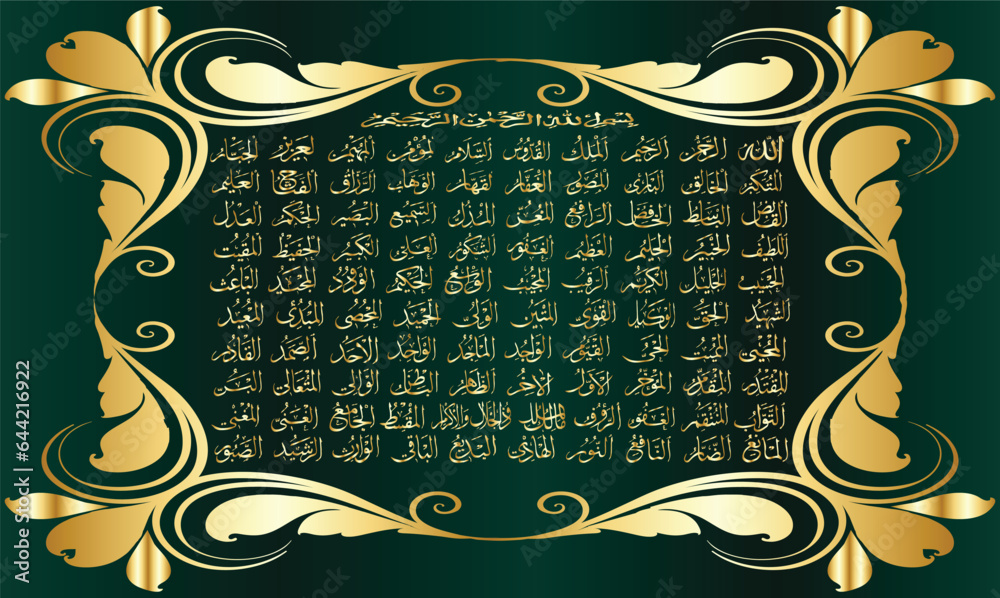 بسم الله الرحمن الرحيم
الله الرحمن الرحيم الملك القدوس السلام المؤمن المهيمن العزيز الجبار
المتكبر الخالق البارئ المصور الغفار القهار الوهاب الرزاق الفتاح العليم
القابض الباسط الخافض الرافع المعز المذل السميع البصير الحكم العدل
اللطيف الخبير الحليم العظيم الغفور الشكور العلي الكبير الحفيظ المقيت
الحسيب الجليل الكريم الرقيب المجيب الواسع الحكيم الودود المجيد الباعث
الشهيد الحق الوكيل القوي المتين الولي الحميد المحصي المبدئ المعيد
المحيي المميت الحي القيوم الواجد الماجد الواحد الاحد الصمد القادر
المقتدر المقدم المؤخر الأول الآخر الظاهر الباطن الوالي المتعالي البر
التواب المنتقم العفو الرؤوف مالك الملك ذو الجلال والإكرام المقسط الجامع الغني المغني
المانع الضار النافع النور الهادي البديع الباقي الوارث الرشيد الصبور
Adobe Stock | #644216922
Adobe Stock